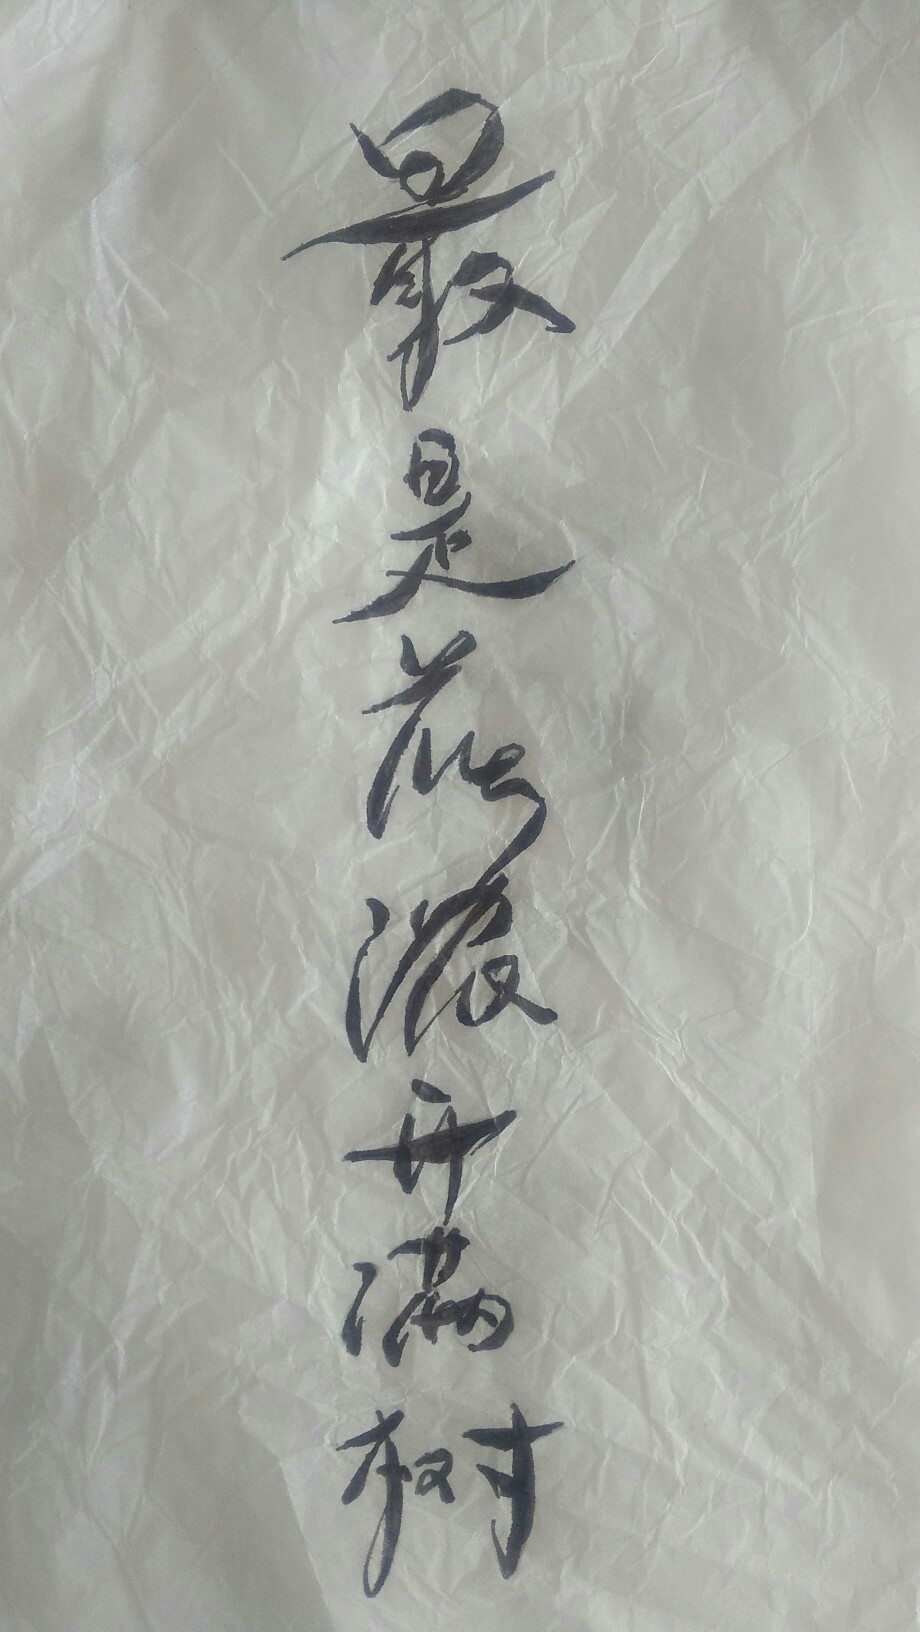 最是花浓开满树